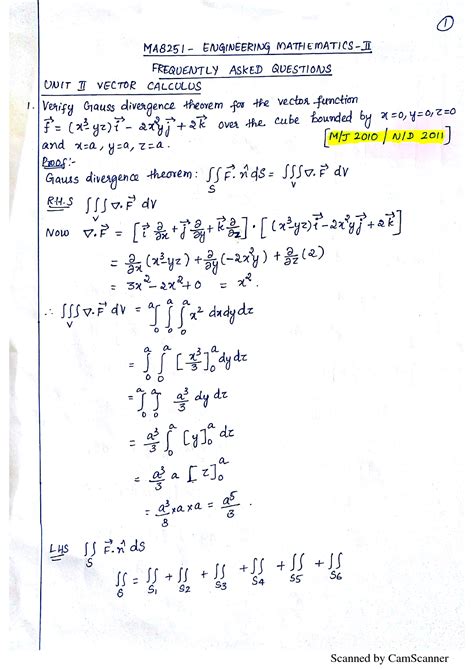 1
MA8251 - ENGINEERING MATHEMATICS - II
FREQUENTLY ASKED QUESTIONS
UNIT II VECTOR CALCULUS
1. Verify Gauss divergence theorem for the vector function
F⃗ = (x³-yz)i⃗ - 2x²yj⃗ + 2k⃗ over the cube bounded by x=0, y=0, z=0
and x=a, y=a, z=a. [M/J 2010 / N/D 2011]
Proof:-
Gauss divergence theorem: ∬_S F⃗.n̂ ds = ∭_V ∇.F⃗ dV
R.H.S ∭_V ∇.F⃗ dV
Now ∇.F⃗ = [i⃗ ∂/∂x + j⃗ ∂/∂y + k⃗ ∂/∂z] . [(x³-yz)i⃗ - 2x²yj⃗ + 2k⃗]
= ∂/∂x (x³-yz) + ∂/∂y (-2x²y) + ∂/∂z (2)
= 3x² - 2x² + 0 = x².
∴ ∭_V ∇.F⃗ dV = ∫₀ᵃ ∫₀ᵃ ∫₀ᵃ x² dxdydz
= ∫₀ᵃ ∫₀ᵃ [x³/3]₀ᵃ dydz
= ∫₀ᵃ ∫₀ᵃ a³/3 dy dz
= a³/3 ∫₀ᵃ [y]₀ᵃ dz
= a³/3 a [z]₀ᵃ
= a³/3 × a × a = a⁵/3.
LHS ∬_S F⃗.n̂ ds
∬_S = ∬_S1 + ∬_S2 + ∬_S3 + ∬_S4 + ∬_S5 + ∬_S6
Scanned by CamScanner